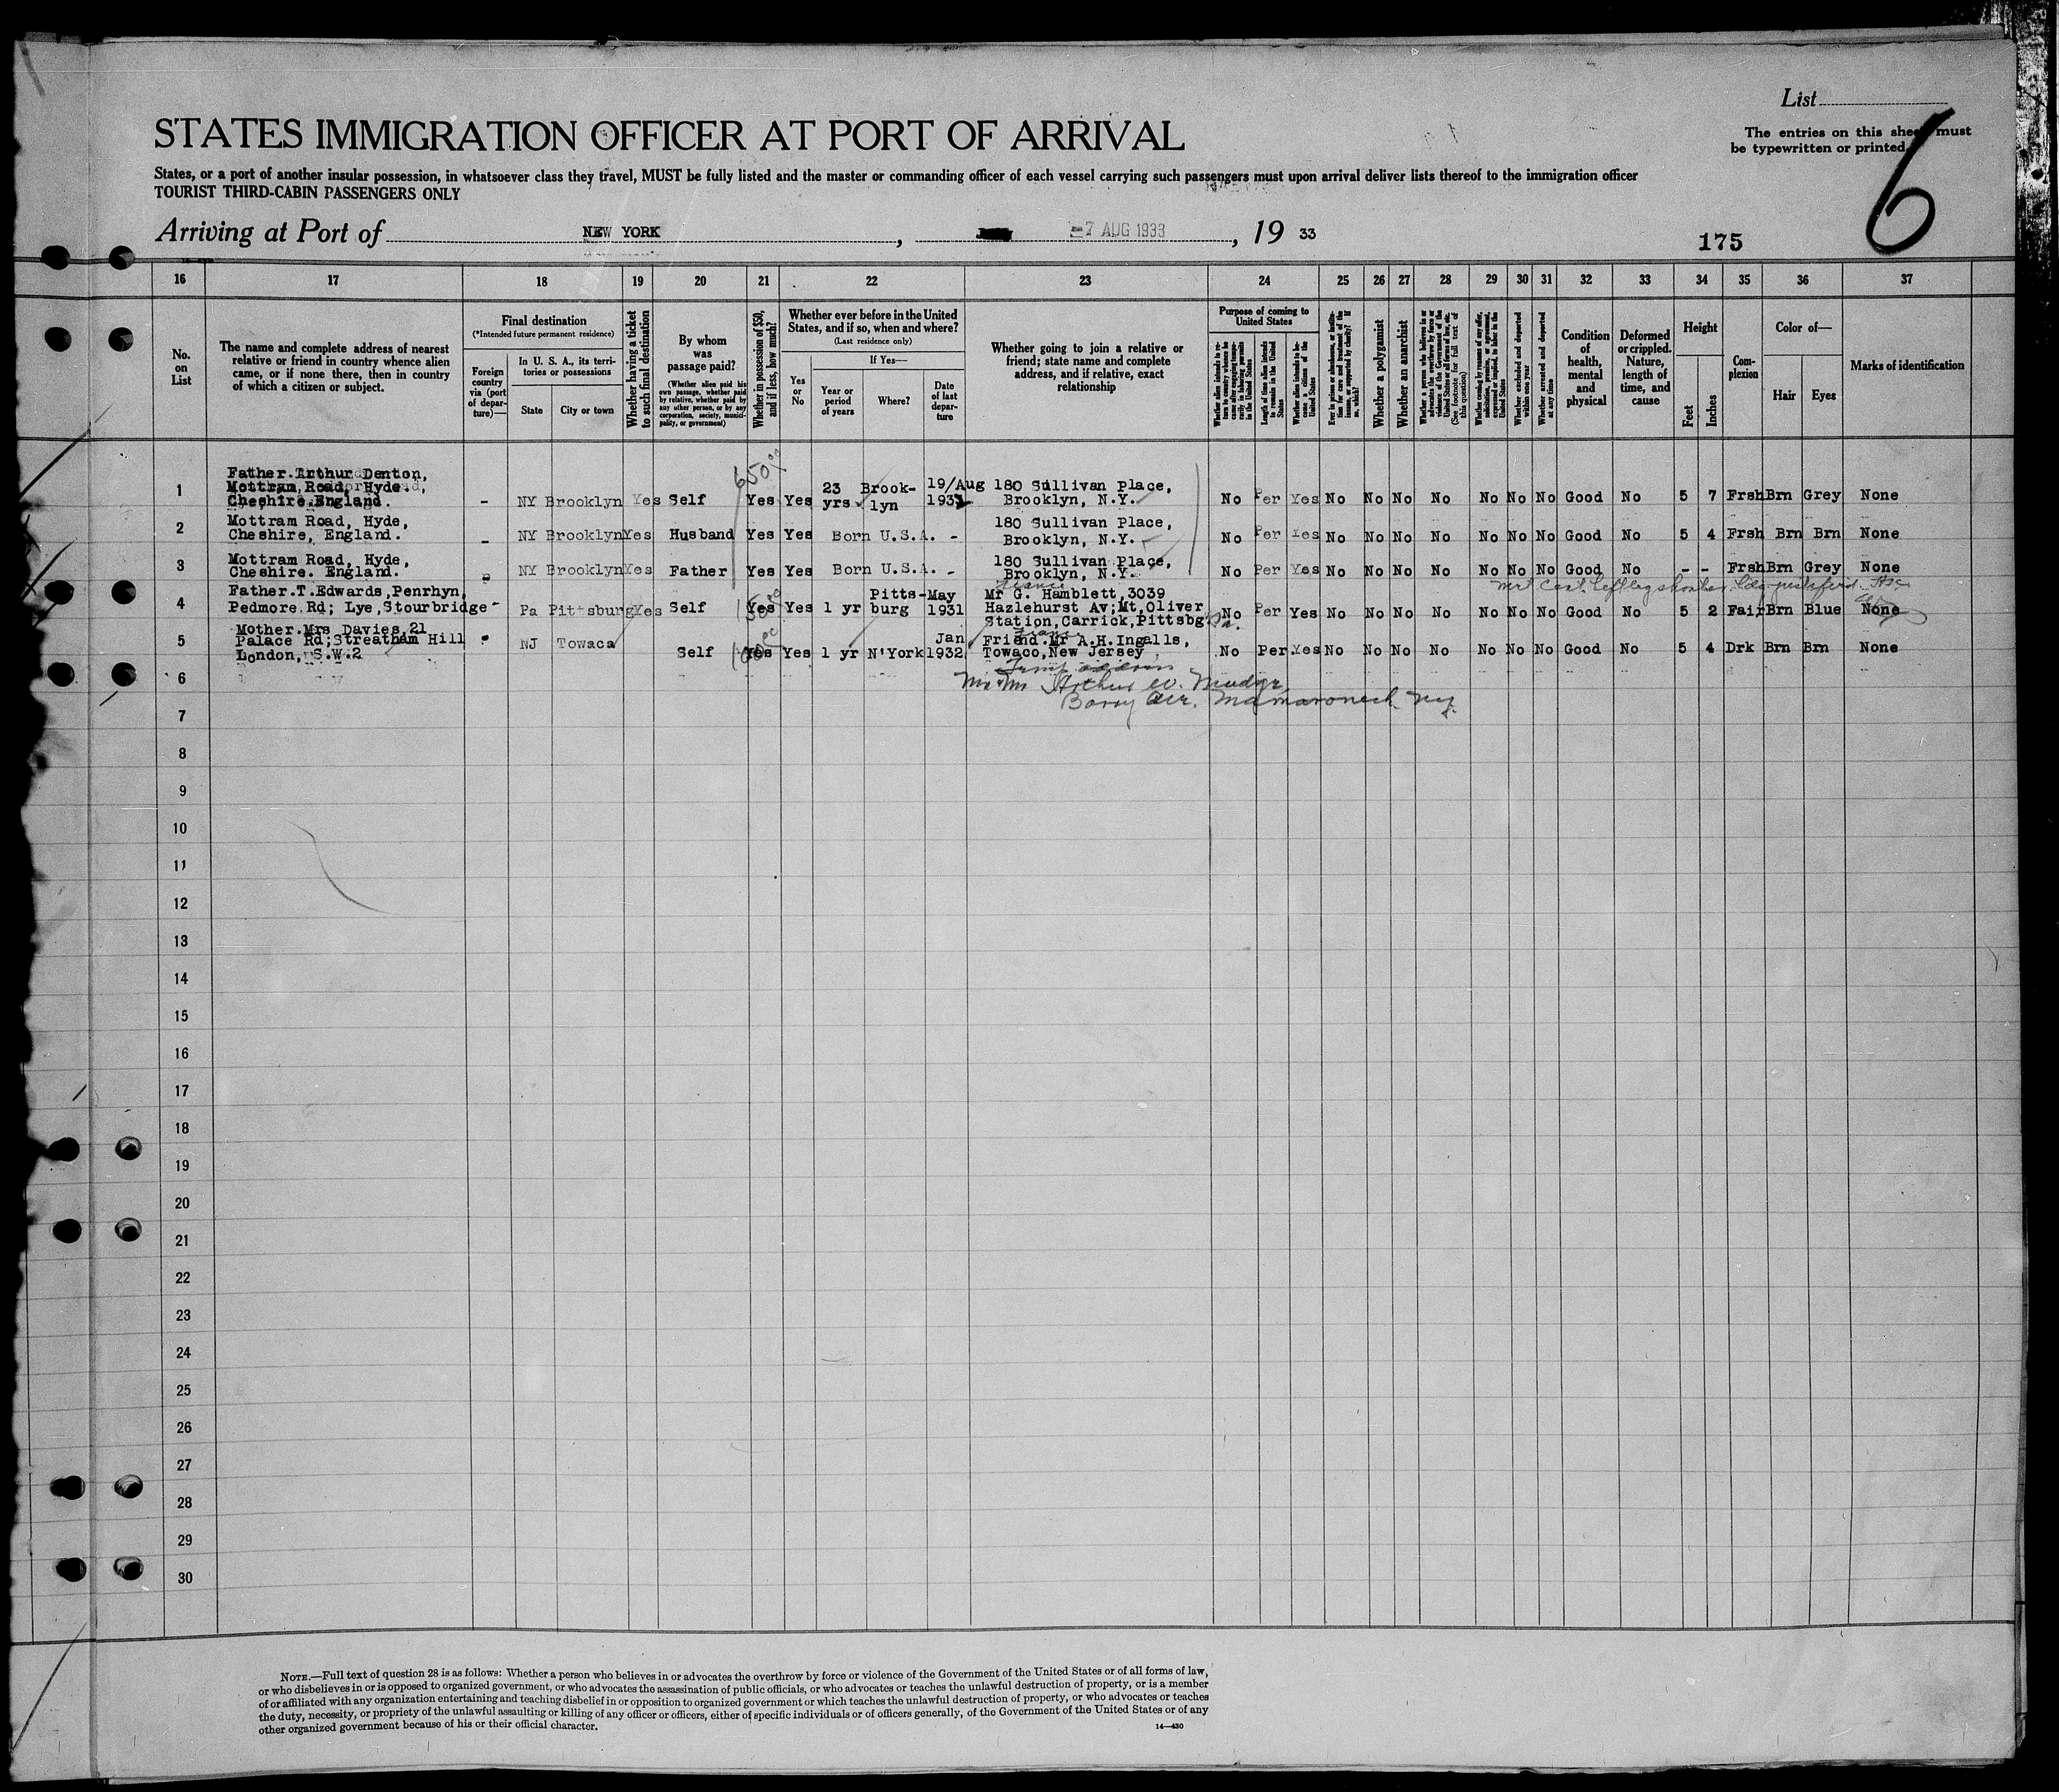 List
STATES IMMIGRATION OFFICER AT PORT OF ARRIVAL
The entries on this sheet must
be typewritten or printed.
6
States, or a port of another insular possession, in whatsoever class they travel, MUST be fully listed and the master or commanding officer of each vessel carrying such passengers must upon arrival deliver lists thereof to the immigration officer
TOURIST THIRD-CABIN PASSENGERS ONLY
Arriving at Port of NEW YORK , -7 AUG 1933 , 19 33
175
16 17 18 19 20 21 22 23 24 25 26 27 28 29 30 31 32 33 34 35 36 37
No. on List
The name and complete address of nearest
relative or friend in country whence alien
came, or if none there, then in country
of which a citizen or subject.
Final destination
(*Intended future permanent residence)
Foreign country via (port of depar-ture)—
In U. S. A., its terri-
tories or possessions
State
City or town
Whether having a ticket
to such final destination
By whom
was
passage paid?
(Whether alien paid his
own passage, whether paid
by relative, whether paid by
any other person, or by any
corporation, society, munici-
pality, or government)
Whether in possession of $50,
and if less, how much?
Whether ever before in the United
States, and if so, when and where?
(Last residence only)
Yes or No
If Yes—
Year or
period
of years
Where?
Date
of last
depar-
ture
Whether going to join a relative or
friend; state name and complete
address, and if relative, exact
relationship
Purpose of coming to
United States
Whether alien intends to re-
turn to country whence he
came after engaging tempo-
rarily in laboring pursuits
in the United States
Length of time alien intends
to remain in the United
States
Whether alien intends to be-
come a citizen of the
United States
Ever in prison or almshouse, or institu-
tion for care and treatment of the
insane, or supported by charity? If
so, which?
Whether a polygamist
Whether an anarchist
Whether a person who believes in or
advocates the overthrow by force or
violence of the Government of the
United States or all forms of law, etc.
(See footnote for full text of
this question)
Whether coming by reasons of any offer,
solicitation, promise, or agreement,
expressed or implied, to labor in the
United States
Whether excluded and deported
within one year
Whether arrested and deported
at any time
Condition
of
health,
mental
and
physical
Deformed
or crippled.
Nature,
length of
time, and
cause
Height
Feet
Inches
Com-
plexion
Color of—
Hair
Eyes
Marks of identification
1 Father.Arthur Denton,
Mottram Road, Hyde,
Cheshire.England.
- NY Brooklyn Yes Self Yes Yes 23 yrs Brook-lyn 19/Aug 193 180 Sullivan Place, Brooklyn, N.Y. No Per Yes No No No No No No No Good No 5 7 Frsh Brn Grey None
650.00
2 Mottram Road, Hyde,
Cheshire, England.
- NY Brooklyn Yes Husband Yes Yes Born U.S.A. - 180 Sullivan Place, Brooklyn, N.Y. No Per Yes No No No No No No No Good No 5 4 Frsh Brn Brn None
3 Mottram Road, Hyde,
Cheshire. England.
- NY Brooklyn Yes Father Yes Yes Born U.S.A. - 180 Sullivan Place, Brooklyn, N.Y. No Per Yes No No No No No No No Good No - - Frsh Brn Grey None
4 Father.T.Edwards,Penrhyn,
Pedmore Rd; Lye,Stourbridge
- Pa Pittsburg Yes Self Yes Yes 1 yr Pitts-burg May 1931
Mr G. Hamblett,3039
Hazlehurst Av;Mt,Oliver
Station,Carrick,Pittsbg
Pa.
No Per Yes No No No No No No No Good No 5 2 Fair Brn Blue None
5 Mother.Mrs Davies,21
Palace Rd;Streatham Hill
London, S.W.2
NJ Towaca Self Yes Yes 1 yr N'York Jan 1932
Friend.Mr A.H.Ingalls,
Towaco,New Jersey
No Per. Yes No No No No No No No Good No 5 4 Drk Brn Brn None
6
Arthur W.
Mamaroneck NY
7
8
9
10
11
12
13
14
15
16
17
18
19
20
21
22
23
24
25
26
27
28
29
30
NOTE.—Full text of question 28 is as follows: Whether a person who believes in or advocates the overthrow by force or violence of the Government of the United States or of all forms of law,
or who disbelieves in or is opposed to organized government, or who advocates the assassination of public officials, or who advocates or teaches the unlawful destruction of property, or is a member
of or affiliated with any organization entertaining and teaching disbelief in or opposition to organized government or which teaches the unlawful destruction of property, or who advocates or teaches
the duty, necessity, or propriety of the unlawful assaulting or killing of any officer or officers, either of specific individuals or of officers generally, of the Government of the United States or of any
other organized government because of his or their official character.
14—430